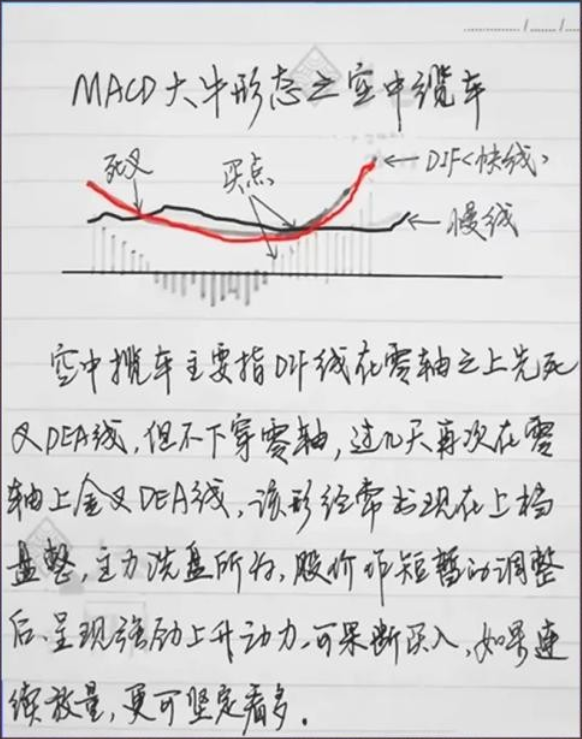 MACD大牛形态之空中缆车
死叉
买点
DIF<快线>
慢线
空中揽车主要指DIF线在零轴之上先死
叉DEA线,但不下穿零轴,过几天再次在零
轴上金叉DEA线,该形经常出现在上档
盘整,主力洗盘所为,股价作短暂的调整
后,呈现强劲上升动力,可果断买入,如果连
续放量,更可坚定看多。